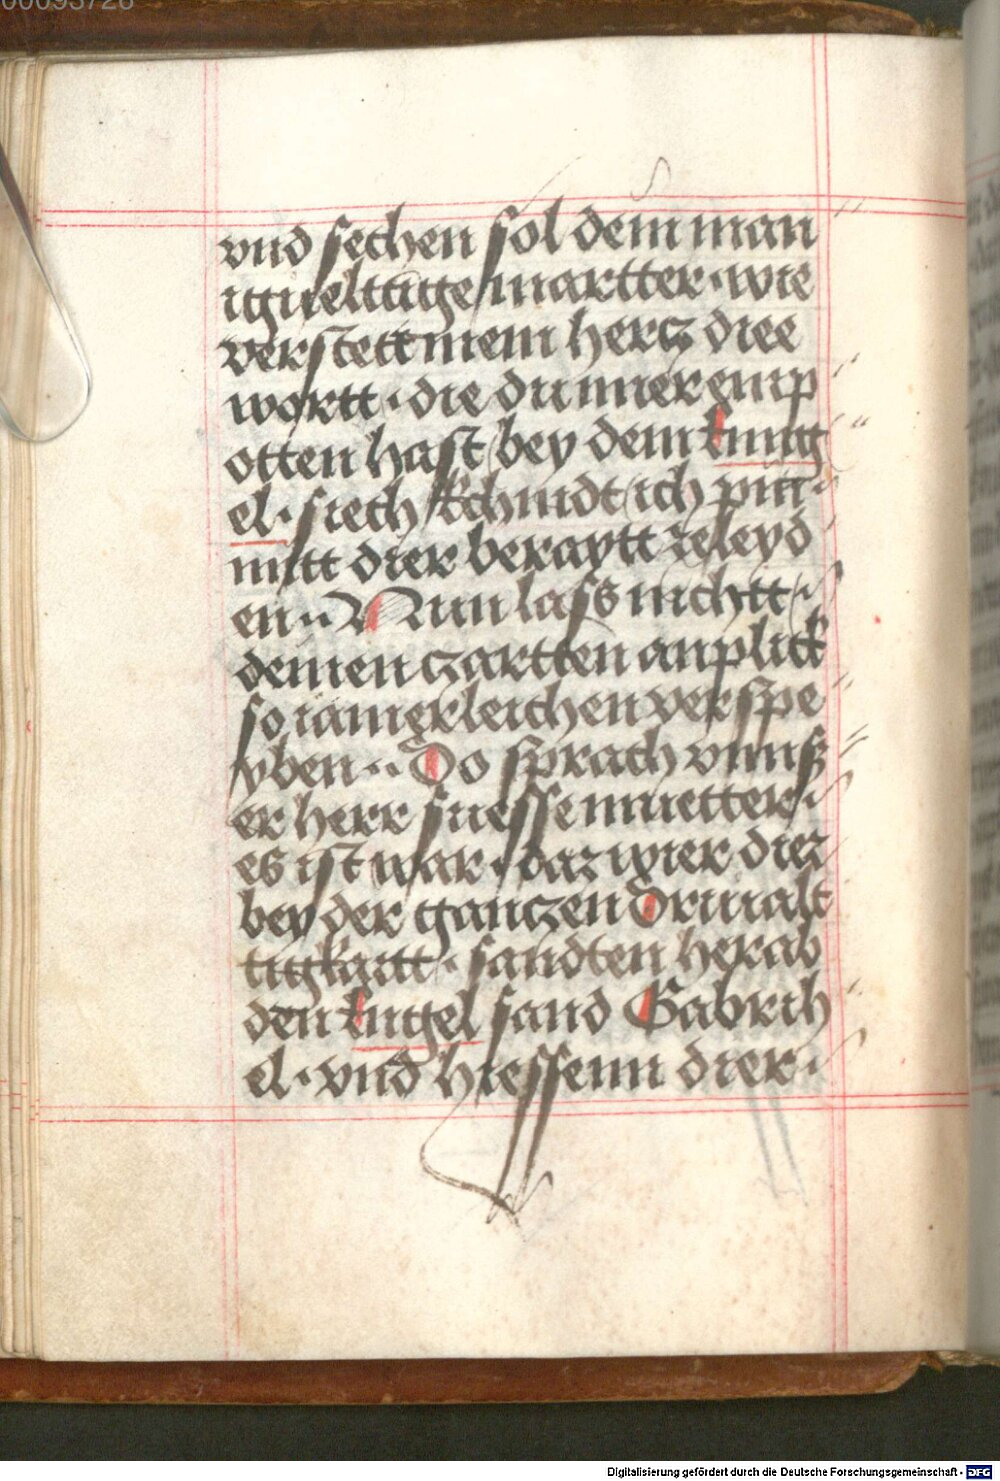 00093726
vnd sechen sol dein man
iguelttige martter · wie
verstett mein hercz diee
wortt · die du mier enp
otten hast bey dem Enng
el · siech kchindt ich pin
mitt dier beraytt zeleyd
en ·· Nun lass nichtt
deinen czartten anplick
so iamerleichen verspe
yben ·· Do sprach vnns
er herr suesse muetter
es ist war · daz wier diez
bey der ganczen driualt
tigkaitt · sandten herab
den Enngel sand Gabrih
el · vnd hiessenn dier ·
Digitalisierung gefördert durch die Deutsche Forschungsgemeinschaft - DFG